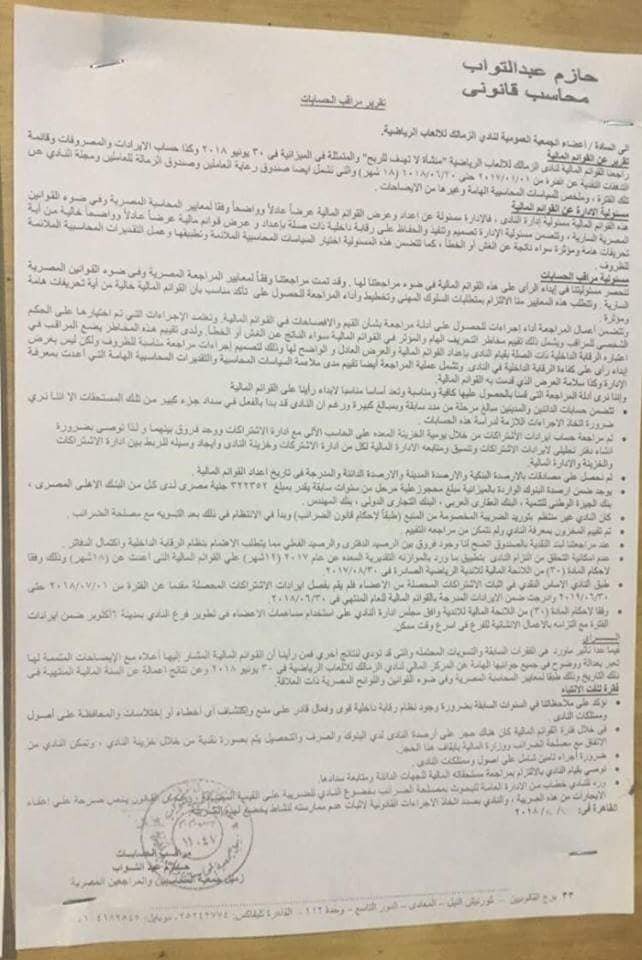 حازم عبدالتواب
محاسب قانونى
تقرير مراقب الحسابات
الى السادة / أعضاء الجمعية العمومية لنادي الزمالك للألعاب الرياضية.
تقرير عن القوائم المالية
راجعنا القوائم المالية لنادى الزمالك للألعاب الرياضية "منشأة لا تهدف للربح" والمتمثلة في الميزانية في ٣٠ يونيو ٢٠١٨ وكذا حساب الايرادات والمصروفات وقائمة
التدفقات النقدية عن الفترة من ٢٠١٧/٠١/٠١ حتى ٢٠١٨/٠٦/٣٠ (١٨ شهر) والتي تشمل ايضا صندوق رعاية العاملين وصندوق الزمالة للعاملين ومجلة النادي عن
تلك الفترة ، وملخص السياسات المحاسبية الهامة وغيرها من الايضاحات.
مسئولية الادارة عن القوائم المالية
هذه القوائم المالية مسئولية إدارة النادي ، فالإدارة مسئولة عن إعداد وعرض القوائم المالية عرضاً عادلاً وواضحاً وفقا لمعايير المحاسبة المصرية وفي ضوء القوانين
المصرية السارية ، وتتضمن مسئولية الإدارة تصميم وتنفيذ والحفاظ على رقابة داخلية ذات صلة بإعداد و عرض قوائم مالية عرضا عادلاً وواضحاً خالية من أية
تحريفات هامة ومؤثرة سواء ناتجة عن الغش أو الخطأ ، كما تتضمن هذه المسئولية اختيار السياسات المحاسبية الملائمة وتطبيقها وعمل التقديرات المحاسبية الملائمة
للظروف
مسئولية مراقب الحسابات
تنحصر مسئوليتنا في إبداء الرأى على هذه القوائم المالية في ضوء مراجعتنا لها . وقد تمت مراجعتنا وفقاً لمعايير المراجعة المصرية وفى ضوء القوانين المصرية
السارية . وتتطلب هذه المعايير منا الالتزام بمتطلبات السلوك المهني وتخطيط وأداء المراجعة للحصول على تأكد مناسب بأن القوائم المالية خالية من أية تحريفات هامة
ومؤثرة .
وتتضمن أعمال المراجعة أداء إجراءات للحصول على أدلة مراجعة بشأن القيم والافصاحات في القوائم المالية. وتعتمد الإجراءات التي تم اختيارها على الحكم
الشخصي للمراقب ويشمل ذلك تقييم مخاطر التحريف الهام والمؤثر في القوائم المالية سواء الناتج عن الغش أو الخطأ. ولدى تقييم هذه المخاطر يضع المراقب في
اعتباره الرقابة الداخلية ذات الصلة بقيام النادي بإعداد القوائم المالية والعرض العادل و الواضح لها وذلك لتصميم إجراءات مراجعة مناسبة للظروف ولكن ليس بغرض
إبداء رأى على كفاءة الرقابة الداخلية في النادى. وتشمل عملية المراجعة أيضا تقييم مدى ملاءمة السياسات المحاسبية والتقديرات المحاسبية الهامة التى أعدت بمعرفة
الإدارة وكذا سلامة العرض الذي قدمت به القوائم المالية.
وإننا نرى أدلة المراجعة التي قمنا بالحصول عليها كافية ومناسبة وتعد أساسا مناسباً لابداء رأينا على القوائم المالية
• تتضمن حسابات الدائنين والمدينين مبالغ مرحلة من مدد سابقة وبمبالغ كبيرة ورغم ان النادى قد بدا بالفعل في سداد جزء كبير من تلك المستحقات الا اننا نري
ضرورة اتخاذ الاجراءات اللازمة لدراسة هذه الحسابات .
• تم مراجعة حساب ايرادات الأشتراكات من خلال يومية الخزينة المعده على الحاسب الآلي مع ادارة الاشتراكات ووجد فروق بينهما و لذا نوصى بضرورة
انشاء دفتر تحليلي لايرادات الاشتراكات وتنسيق ومتابعه الادارة المالية لكل من ادارة الاشتركات وخزينة النادي وايجاد وسيله للربط بين ادارة الاشتراكات
والخزينة والادارة المالية.
• لم نحصل على مصادقات بالارصدة البنكية والارصدة المدينة والارصدة الدائنة والمدرجة فى تاريخ اعداد القوائم المالية.
• يوجد ضمن ارصدة البنوك الواردة بالميزانية مبلغ محجوز عليه مرحل من سنوات سابقة يقدر بمبلغ ٣٢٢٣٥٢ جنية مصرى لدى كل من البنك الاهلى المصرى ،
بنك الجيزة الوطني للتنمية ، البنك العقارى العربي ، البنك التجارى الدولي ، بنك المهندس .
• كان النادي غير منتظم بتوريد الضريبة المخصومة من المنبع (طبقا لاحكام قانون الضرائب) وبدأ فى الانتظام في ذلك بعد التسويه مع مصلحة الضرائب .
• تم تقييم المخزون بمعرفة النادي ولم نتمكن من مراجعه التقييم
• عند مراجعتنا لبند النقدية بالصندوق اتضح لنا وجود فروق بين الرصيد الدفترى والرصيد الفعلى مما يتطلب الاهتمام بنظام الرقابة الداخلية واكتمال الدفاتر.
• عدم امكانية التحقق من التزام النادي بتطبيق ما ورد بالموازنه التقديرية المعده عن عام ٢٠١٧ (١٢شهر) علي القوائم المالية التى أعدت عن (١٨شهر) وذلك وفقا
لاحكام المادة (٣٠) من اللائحة المالية للاندية الرياضية الصادرة في ٢٠١٧/٠٨/٣٠.
• طبق النادي الاساس النقدي في اثبات الاشتراكات المحصلة من الاعضاء فلم يقم بفصل ايرادات الإشتراكات المحصلة مقدما عن الفترة من ٢٠١٨/٠٧/٠١ حتى
٢٠١٩/٠٦/٣٠ وادرجت ضمن الايرادات المدرجة بالقوائم المالية للعام المنتهي في ٢٠١٨/٠٦/٣٠.
• وفقا لاحكام المادة (٣٠) من اللائحة المالية للاندية وافق مجلس ادارة النادي علي استخدام مساهمات الاعضاء في تطوير فرع النادي بمدينة ٦أكتوبر ضمن ايرادات
الفترة مع التزامه بالاعمال الانشائية للفرع في اسرع وقت ممكن.
الـــــرأى
فيما عدا تأثير ماورد فى الفقرات السابقة والتسويات المحتمله والتى قد تودي لنتائج أخرى فمن رأينا أن القوائم المالية المشار إليها أعلاه مع الإيضاحات المتممة لها
تعبر بعدالة ووضوح في جميع جوانبها الهامة عن المركز المالي لنادي الزمالك للألعاب الرياضية في ٣٠ يونيو ٢٠١٨ وعن نتائج اعمالة عن السنة المالية المنتهية في
ذلك التاريخ وذلك طبقا لمعايير المحاسبة المصرية وفى ضوء القوانين واللوائح المصرية ذات العلاقة.
فقرة لفت الانتباه
• نؤكد على ملاحظاتنا في السنوات السابقة بضرورة وجود نظام رقابة داخلية قوى وفعال قادر على منع وإكتشاف أى أخطاء أو إختلاسات والمحافظة على أصول
وممتلكات النادى.
• فى خلال فترة القوائم المالية كان هناك حجر على أرصدة النادى لدى البنوك والصرف والتحصيل يتم بصورة نقدية من خلال خزينة النادى ، وتمكن النادي من
الاتفاق مع مصلحة الضرائب ووزارة المالية بايقاف هذا الحجر.
• ضرورة أجراء تامين شامل على اصول وممتلكات النادى.
• نوصى بقيام النادى بالالتزام بمراجعة مستحقاته المالية للجهات الدائنة ومتابعة سدادها.
• ورد للنادي خطاب من الادارة العامة للبحوث بمصلحة الضرائب بخضوع النادى للضريبة على القيمة المضافة القانون ينص صرحة على اعفاء
الايجارات من هذه الضريبة ، والنادى بصدد اتخاذ الاجراءات القانونية لاثبات عدم ممارسته لنشاط يخضع لهذة الضريبة.
القاهرة فى: / / ٢٠١٨
مراقب الحسابات
حازم عبد التواب
زميل جمعية المحاسبين والمراجعين المصرية
١١٠٤١
٣٣ برج القانونيين - كورنيش النيل - المعادى - الدور التاسع - وحدة ١٢٢ - القاهرة تليفاكس: ٢٥٢٤٢٧٧٤ موبايل: